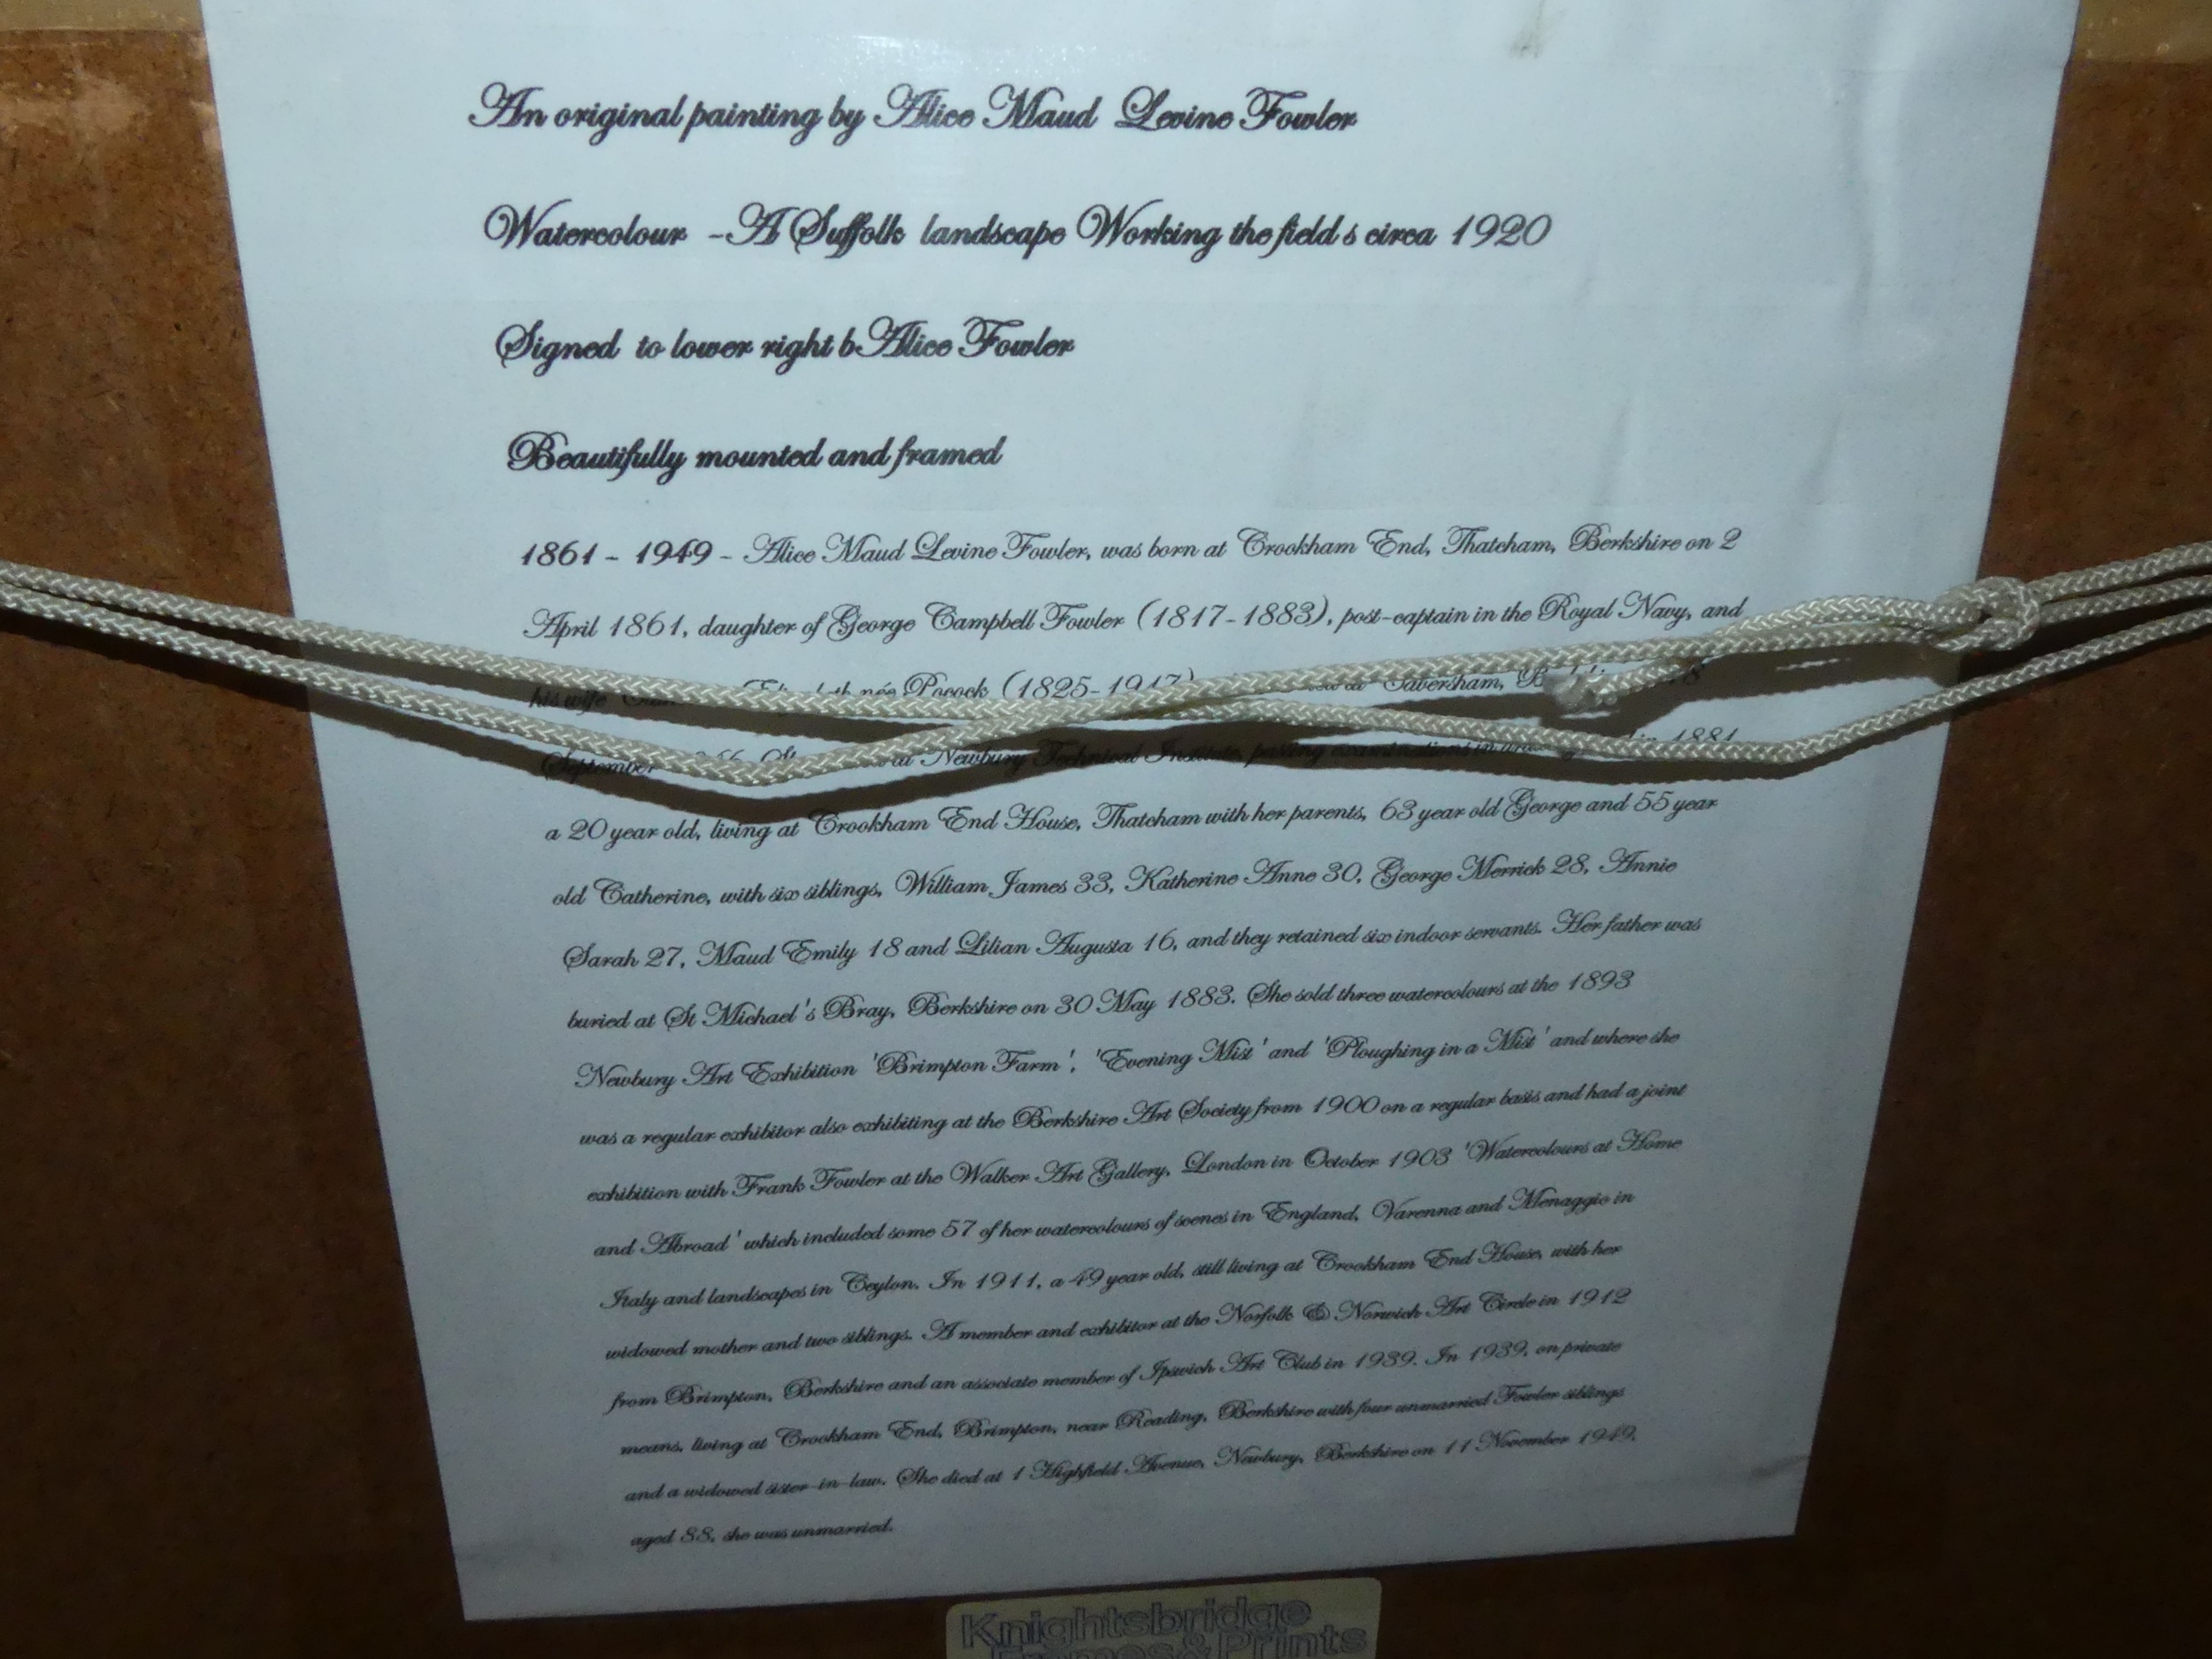 An original painting by Alice Maud Levine Fowler
Watercolour -A Suffolk landscape Working the field s circa 1920
Signed to lower right b Alice Fowler
Beautifully mounted and framed
1861 - 1949 - Alice Maud Levine Fowler, was born at Crookham End, Thatcham, Berkshire on 2
April 1861, daughter of George Campbell Fowler (1817-1883), post-captain in the Royal Navy, and
his wife née Pocock (1825-1917)
September Newbury Technical Institute, passing in 1881,
a 20 year old, living at Crookham End House, Thatcham with her parents, 63 year old George and 55 year
old Catherine, with six siblings, William James 33, Katherine Anne 30, George Merrick 28, Annie
Sarah 27, Maud Emily 18 and Lilian Augusta 16, and they retained six indoor servants. Her father was
buried at St Michael's Bray, Berkshire on 30 May 1883. She sold three watercolours at the 1893
Newbury Art Exhibition 'Brimpton Farm', 'Evening Mist' and 'Ploughing in a Mist' and where she
was a regular exhibitor also exhibiting at the Berkshire Art Society from 1900 on a regular basis and had a joint
exhibition with Frank Fowler at the Walker Art Gallery, London in October 1903 'Watercolours at Home
and Abroad' which included some 57 of her watercolours of scenes in England, Varenna and Menaggio in
Italy and landscapes in Ceylon. In 1911, a 49 year old, still living at Crookham End House, with her
widowed mother and two siblings. A member and exhibitor at the Norfolk & Norwich Art Circle in 1912
from Brimpton, Berkshire and an associate member of Ipswich Art Club in 1939. In 1939, on private
means, living at Crookham End, Brimpton, near Reading, Berkshire with four unmarried Fowler siblings
and a widowed sister-in-law. She died at 1 Highfield Avenue, Newbury, Berkshire on 11 November 1949,
aged 88, she was unmarried.
Knightsbridge
Frames & Prints